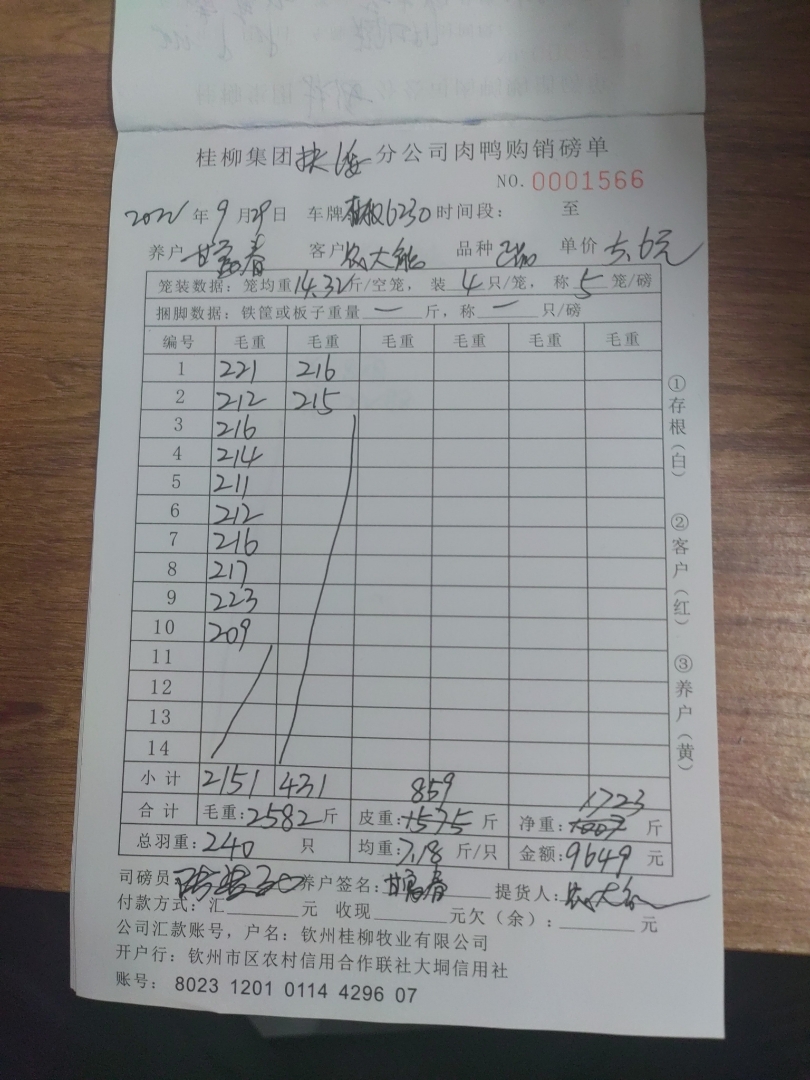 桂柳集团 分公司肉鸭购销磅单
NO. 0001566
年 9 月 29 日 车牌 6230 时间段： 至
养户 甘 春 客户 农大能 品种 单价 5.6元
笼装数据：笼均重 14.32 斤/空笼， 装 4 只/笼， 称 5 笼/磅
捆脚数据：铁筐或板子重量 — 斤，称 — 只/磅
编号 毛重 毛重 毛重 毛重 毛重 毛重
1 221 216
2 212 215
3 216
4 214
5 211
6 212
7 216
8 217
9 223
10 209
11
12
13
14
小计 2151 431 859 1723
合计 毛重：2582 斤 皮重：1575 斤 净重：1007 斤
总羽重：240 只 均重：7.18 斤/只 金额：9649 元
司磅员 养户签名：甘 春 提货人：农大能
付款方式：汇 元 收现 元欠（余）： 元
公司汇款账号，户名：钦州桂柳牧业有限公司
开户行：钦州市区农村信用合作联社大垌信用社
账号： 8023 1201 0114 4296 07
①存根（白）
②客户（红）
③养户（黄）